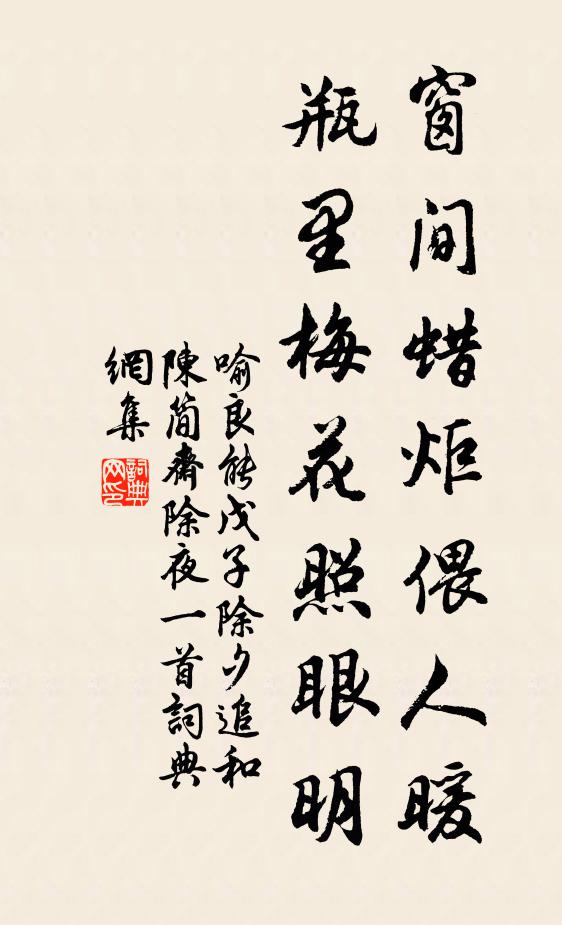 窗间蜡炬偎人暖
瓶里梅花照眼明
喻良能戊子除夕追和
陳简齋除夜一首詞典
網集
詞典
网印